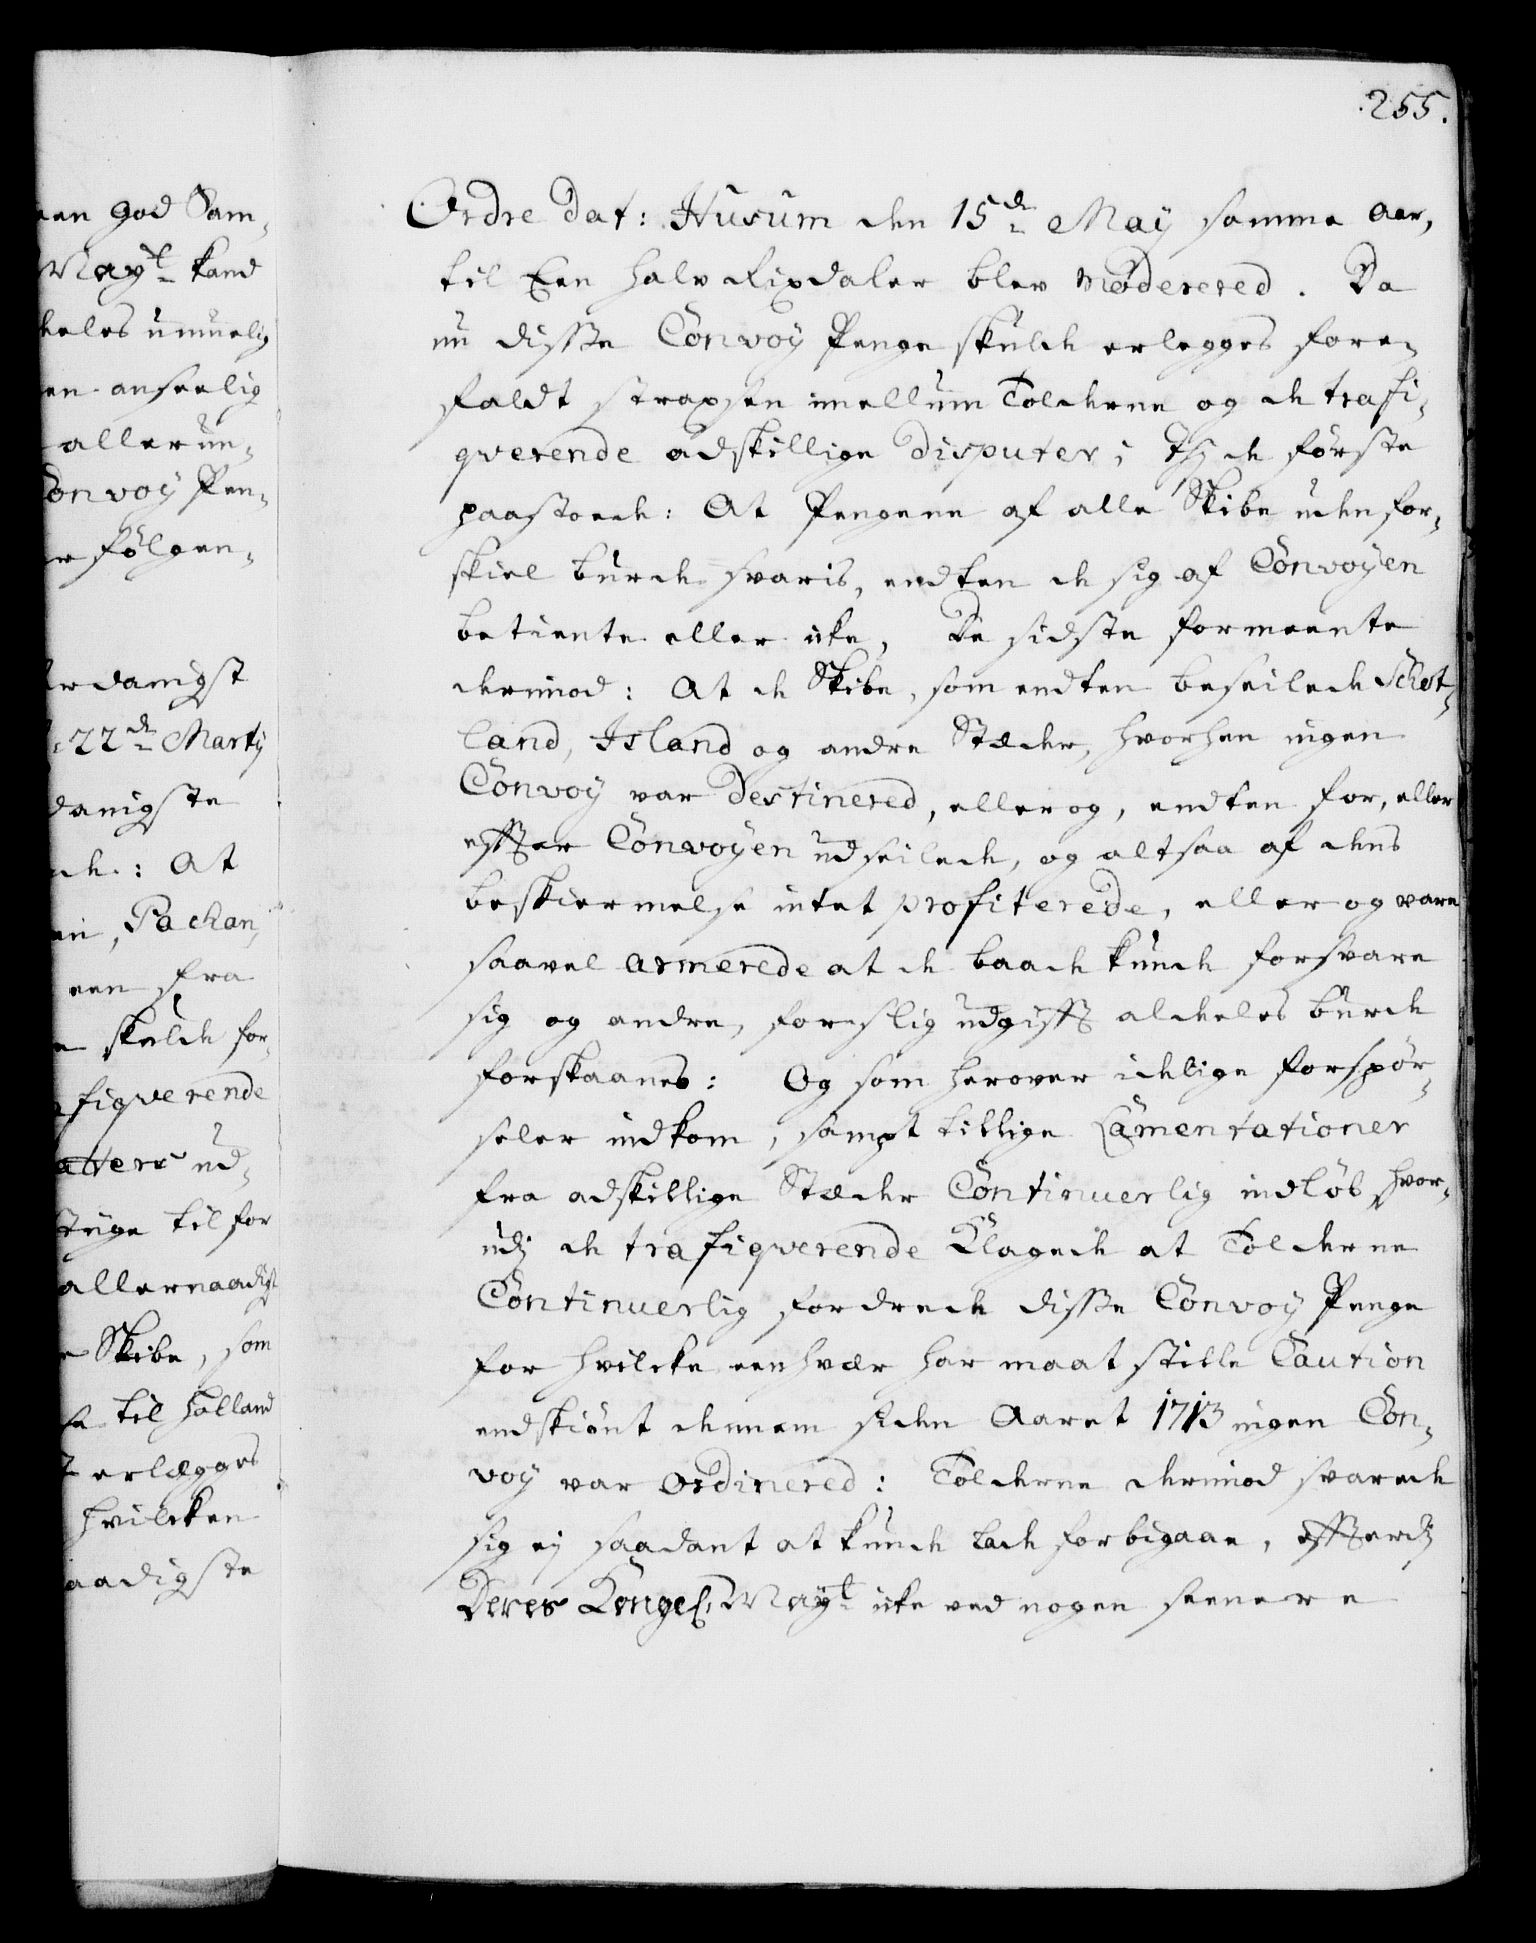 een god Sam-
Mayt. kand
heles umuelig
en anseelig
allerun-
Convoy Pen-
er følgen-
erdanigst
22de Martij
danigste
de: At
en, Pa ckan,
een fra
e skulde for-
fiqverende
atters ud-
stige til for
allernaadigst
e Skibe, som
se til Holland
t erlægges
hvilcken
aadigste
255.
Ordre dat: Husum den 15de May samme Aar,
til Een halv Rixdaler blev moderered. Da
nu disse Convoy Penge skulde erlegges fore-
faldt strapsen imellum Tolderne og de trafi-
qverende adskillige disputer; thj de første
paastoede: At Pengene af alle Skibe uden for-
skiel burde svaris, endten de sig af Convoyen
betiente eller icke, De sidste formeente
derimod: At de Skibe, som endten beseilede Schot-
land, Island og andre Stæder, hvorhen ingen
Convoy var destinered, eller og, endten for, eller
effter Convoyen udseilede, og altsaa af dens
beskiermelse intet profiterede, eller og vare
saavel armerede at de baade kunde forsvare
sig og andre, for slig udgifft aldeles burde
forskaanes: Og som herover idelige forspør-
seler indkom, sampt tillige Lamentationer
fra adskillige Stæder Continuerlig indløb hvor-
udj de trafiqverende Klagede at Tolderne
Continuerlig fordrede disse Convoy Penge
for hvilcke eenhvær har maat stille Caution
endskiønt dennem siden Aaret 1713 ingen Con-
voy var ordinered: Tolderne derimod svarede
sig ej saadant at kunde lade forbigaae, efftterdj
Deres Kongel. Mayt. icke ved nogen seenere